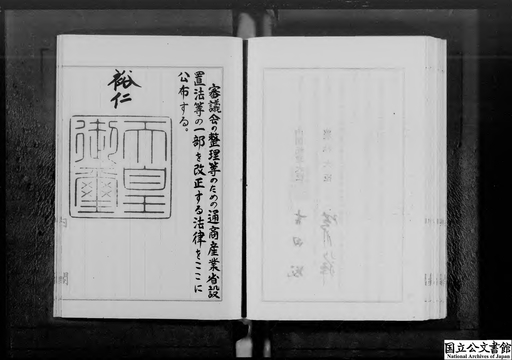 審議会の整理等のための通商産業省設
置法等の一部を改正する法律をここに
公布する。
裕仁
天皇
御璽
国立公文書館
National Archives of Japan